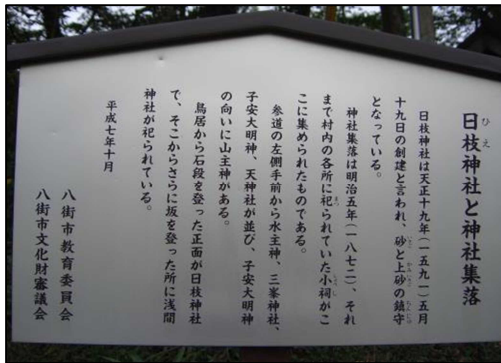 日枝神社と神社集落
ひえ
日枝神社は天正十九年(一五九一)五月
十九日の創建と言われ、砂と上砂の鎮守
いさご かみいさご ちんじゅ
となっている。
神社集落は明治五年(一八七二)、それ
まで村内の各所に祀られていた小祠がこ
まつ しょうし
こに集められたものである。
参道の左側手前から水主神、三峯神社、
子安大明神、天神社が並び、子安大明神
の向いに山主神がある。
鳥居から石段を登った正面が日枝神社
で、そこからさらに坂を登った所に浅間
神社が祀られている。
平成七年十月
八街市教育委員会
八街市文化財審議会